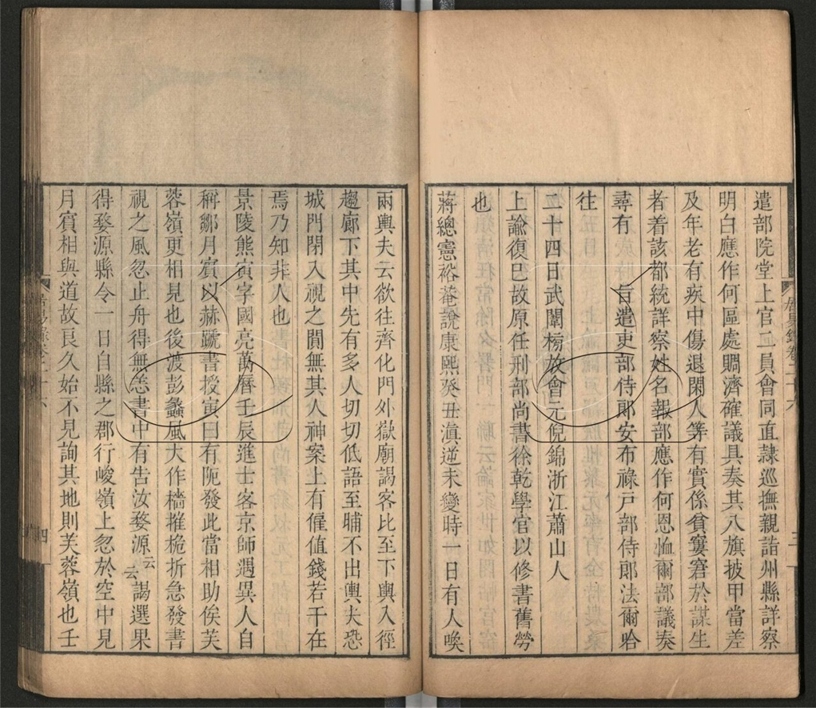 遣部院堂上官二員會同直隷巡撫親詣州縣詳察
明白應作何區處賜濟確議具奏其八旗披甲當差
及年老有疾中傷退閑人等有實係貧窶窘於謀生
者着該都統詳察姓名報部應作何恩恤爾部議奏
尋有 旨遣吏部侍郎安布祿戸部侍郎法爾哈
往
二十四日武闈榜放會元倪錦浙江蕭山人
上諭復已故原任刑部尚書徐乾學官以修書舊勞
也
蔣總憲裕菴說康熙癸丑滇逆未變時一日有人喚
兩輿夫云欲往齊化門外嶽廟謁客比至下輿入徑
趨廊下其中先有多人切切低語至晡不出輿夫恐
城門閉入視之閴無其人神案上有僱值錢若干在
焉乃知非人也
景陵熊寅字國亮萬曆壬辰進士客京師遇異人自
稱鄒月賓以赫蹏書授寅曰有阨發此當相助俟芙
蓉嶺更相見也後渡彭蠡風大作檣摧桅折急發書
視之風忽止舟得無恙書中有告汝婺源云云謁選果
得婺源縣令一日自縣之郡行峻嶺上忽於空中見
月賓相與道故良久始不見詢其地則芙蓉嶺也壬
四